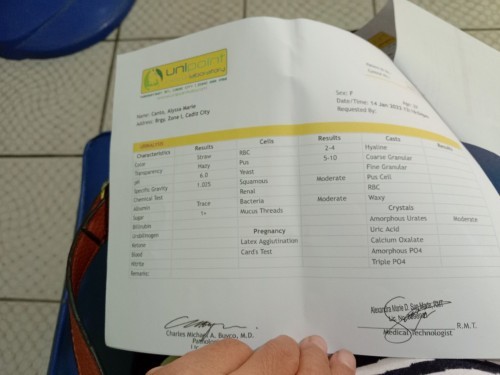 unipoint
laboratory
Name: Canto, Alyssa Marie
Address: Brgy. Zone I, Cadiz City
Sex: F
Date/Time: 14 Jan
Requested By:
URINALYSIS
Characteristics Results Cells Results Casts Results
Color Straw RBC 2-4 Hyaline
Transparency Hazy Pus 5-10 Coarse Granular
pH 6.0 Yeast Fine Granular
Specific Gravity 1.025 Squamous Moderate Pus Cell
Chemical Test Renal RBC
Albumin Trace Bacteria Moderate Waxy
Sugar 1+ Mucus Threads Crystals
Bilirubin Amorphous Urates Moderate
Urobilinogen Pregnancy Uric Acid
Ketone Latex Agglutination Calcium Oxalate
Blood Card's Test Amorphous PO4
Nitrite Triple PO4
Remarks:
Charles Michael A. Buyco, M.D.
R.M.T.
Medical Technologist